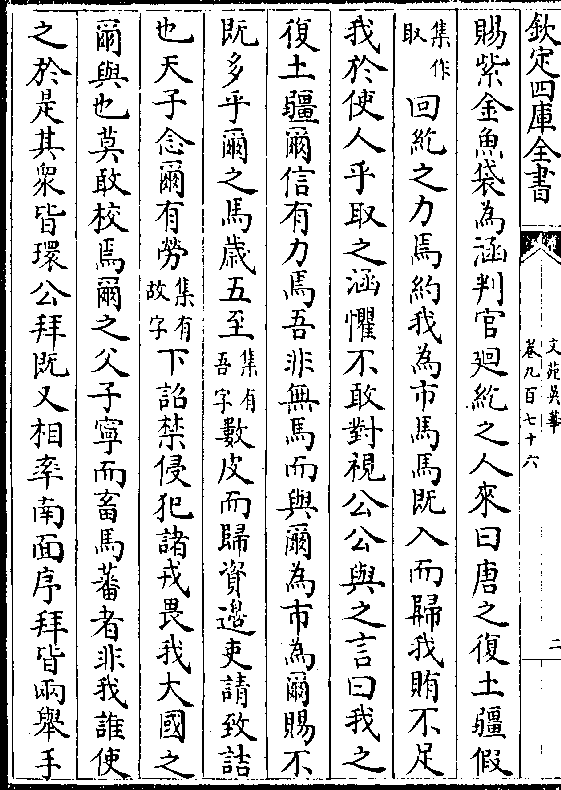 欽定四庫全書
文苑英華
卷九百七十六
二
賜紫金魚袋為涵判官廻紇之人來曰唐之復土疆假
集作取回紇之力焉約我為市馬馬既入而歸我賄不足
我於使人乎取之涵懼不敢對視公公與之言曰我之
復土疆爾信有力焉吾非無馬而與爾為市為爾賜不
既多乎爾之馬歲五至集有吾字數皮而歸資邉吏請致詰
也天子念爾有勞集有故字下詔禁侵犯諸戎畏我大國之
爾與也莫敢校焉爾之父子寧而畜馬蕃者非我誰使
之於是其衆皆環公拜既又相率南面序拜皆兩舉手